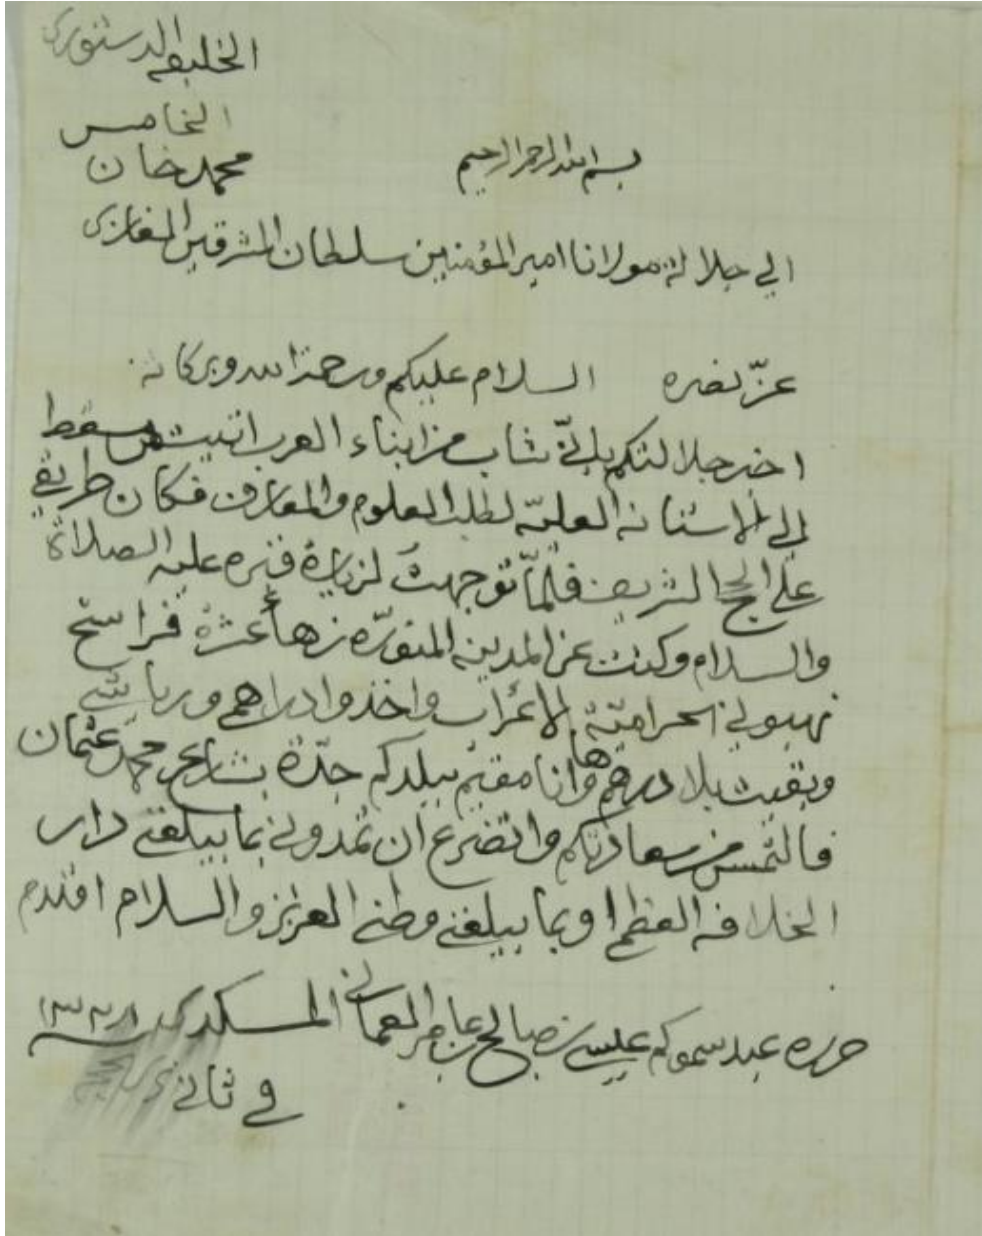 الخليفه الدستوري
الخامس
محمد خان
بسم الله الرحمن الرحيم
الي جلالة مولانا امير المؤمنين سلطان المشرقين المغازي
عزّ نصره السلام عليكم ورحمة الله وبركاته
اخبر جلالتكم بانّي شاب من ابناء العرب اتيت من مسقط
الى الاستانه العليّه لطلب العلوم والمعارف فكان طريقي
على الحج الشريف فلمّا توجهتُ لزيارة قبره عليه الصلاة
والسلام وكنت عن المدينه المنوّره زهاء عشرة فراسخ
نهبوني الحراميّة الاعراب واخذوا دراهمي ورياشي
وبقيت بلا درهم وها انا مقيم ببلدكم جدّة بشارع محمّد عثمان
فالتمس من سعادتكم واتضرع ان تمدوني بما يبلغني دار
الخلافه العظما او بما يبلغني وطني العزيز والسلام افندم
حرره عبد سموكم عيسى بن صالح بن عامر العماني المسكدي ١٣٢٨
في ثاني